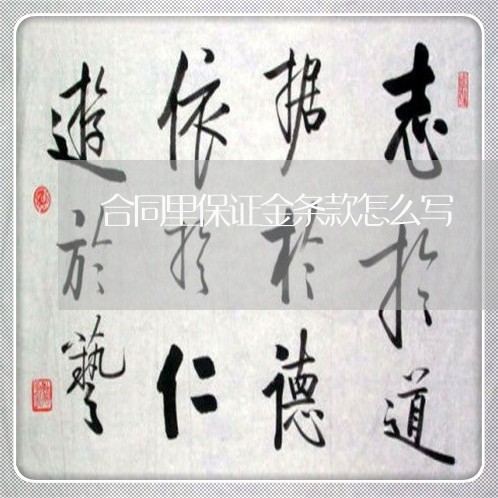 志於道
据於德
依於仁
遊於藝
合同里保证金条款怎么写